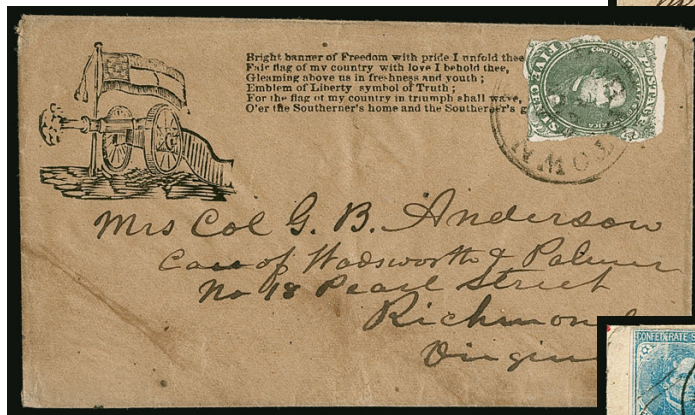 Bright banner of Freedom with pride I unfold thee
Fair flag of my country with love I behold thee,
Gleaming above us in freshness and youth;
Emblem of Liberty symbol of Truth;
For the flag of my country in triumph shall wave,
O'er the Southerner's home and the Southerner's g
FIVE CENTS
POSTAGE
TOWN
Mrs Col G. B. Anderson
Care of Wadsworth & Palmer
No 18 Pearl Street
Richmon
Virgin
CONFEDERATE S